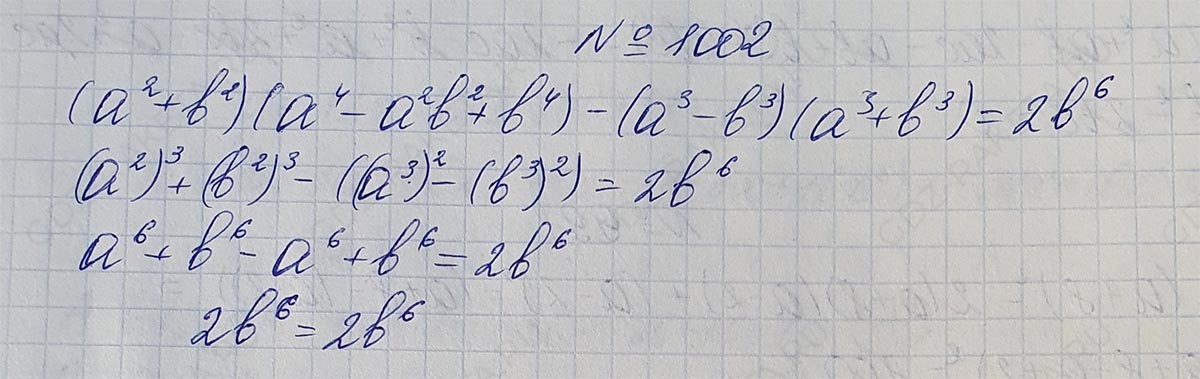 № 1002
(a²+b²)(a⁴-a²b²+b⁴)-(a³-b³)(a³+b³)=2b⁶
(a²)³+(b²)³-((a³)²-(b³)²)=2b⁶
a⁶+b⁶-a⁶+b⁶=2b⁶
2b⁶=2b⁶